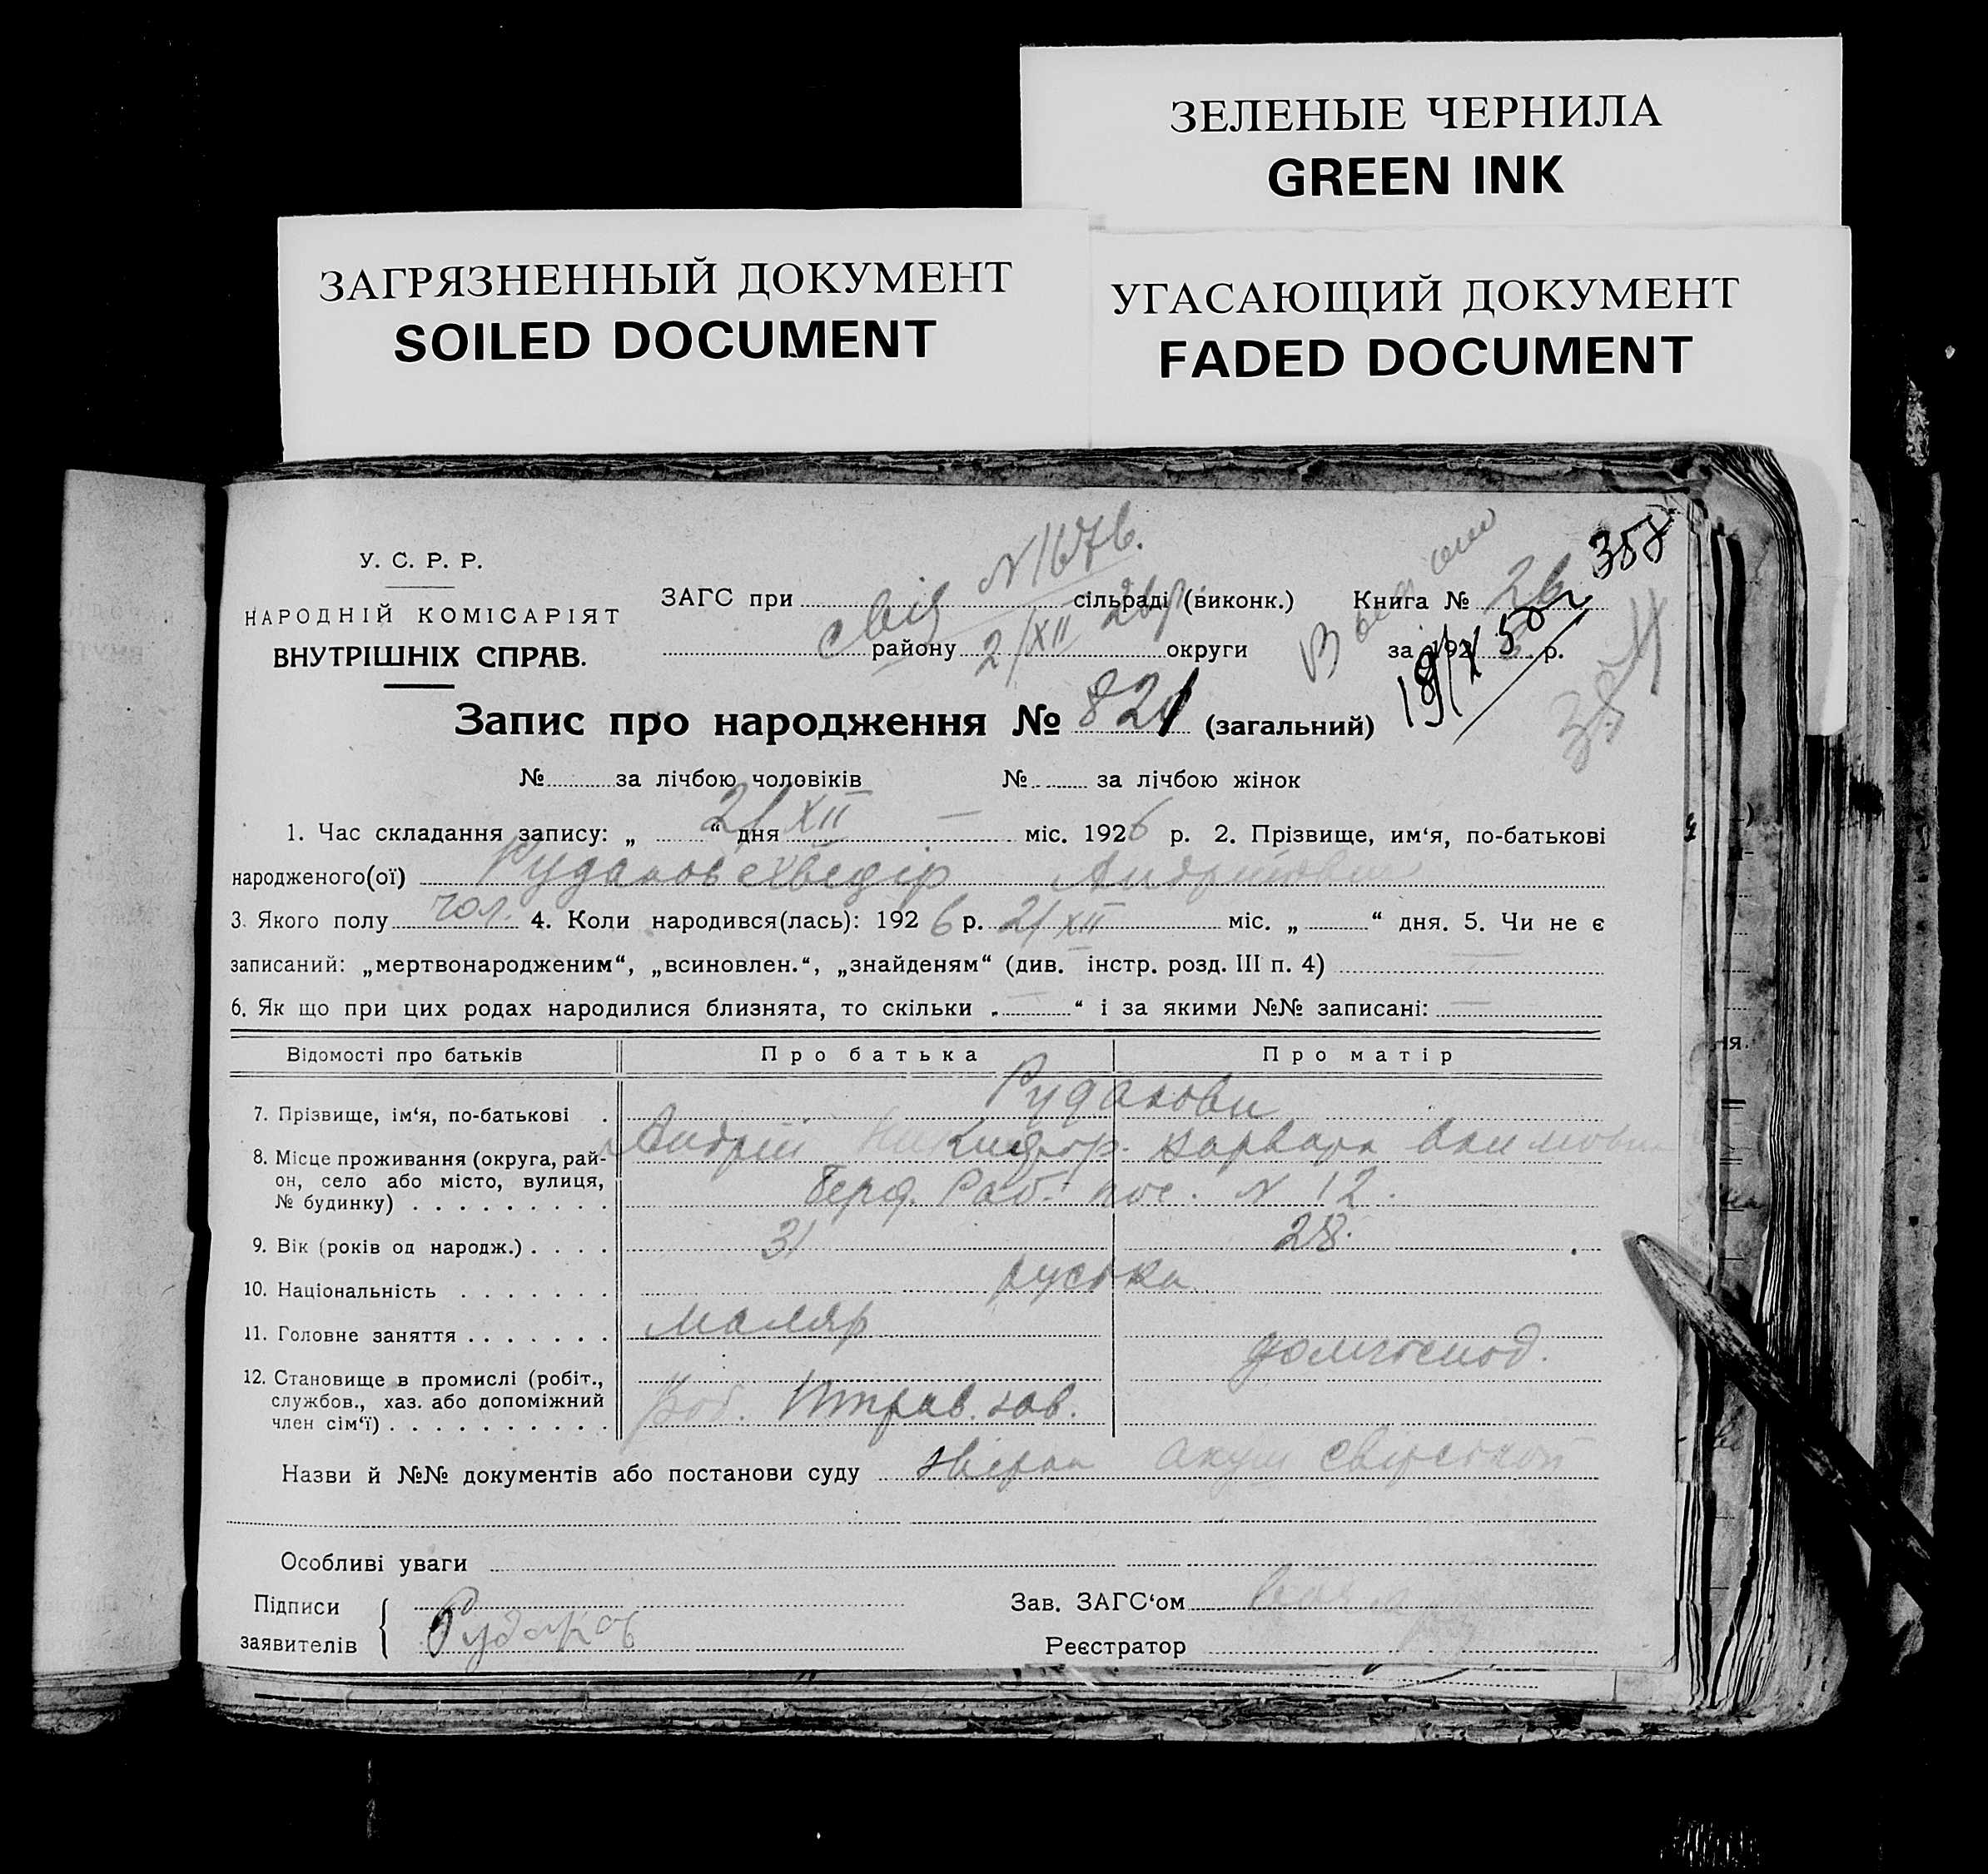 ЗЕЛЕНЫЕ ЧЕРНИЛА
GREEN INK
ЗАГРЯЗНЕННЫЙ ДОКУМЕНТ
SOILED DOCUMENT
УГАСАЮЩИЙ ДОКУМЕНТ
FADED DOCUMENT
У. С. Р. Р.
НАРОДНІЙ КОМІСАРІЯТ
ВНУТРІШНІХ СПРАВ.
N 1676.
358
ЗАГС при сільраді (виконк.) Книга № 26
району 2/XII 26р округи за 192 р.
19/V 50г
Запис про народження № 821 (загальний)
№ за лічбою чоловіків № за лічбою жінок
1. Час складання запису: „ 21 “ дня XII — міс. 1926 р. 2. Прізвище, им‘я, по-батькові
народженого(ої) Рудаков Хведір Андрійович
3. Якого полу чол. 4. Коли народився(лась): 1926 р. 21 XII міс. „ “ дня. 5. Чи не є
записаний: „мертвонародженим“, „всиновлен.“, „знайденям“ (див. інстр. розд. III п. 4) —
6. Як що при цих родах народилися близнята, то скільки „ — “ і за якими №№ записані: —
Відомості про батьків Про батька Про матір
7. Прізвище, ім‘я, по-батькові . Рудакови
Андрій Никифор. Варвара
8. Місце проживання (округа, рай-
он, село або місто, вулиця,
№ будинку) . . . . . . . . . Берд. Раб. пос. N 12.
9. Вік (років од народж.) . . . . 31 28.
10. Національність . . . . . . . руська
11. Головне заняття . . . . . . . маляр домгоспод.
12. Становище в промислі (робіт.,
службов., хаз. або допоміжний
член сім‘ї) . . . . . . . . . . Роб. зав.
Назви й №№ документів або постанови суду акуш
Особливі уваги
Підписи Зав. ЗАГС‘ом
заявителів Рудаков Реєстратор